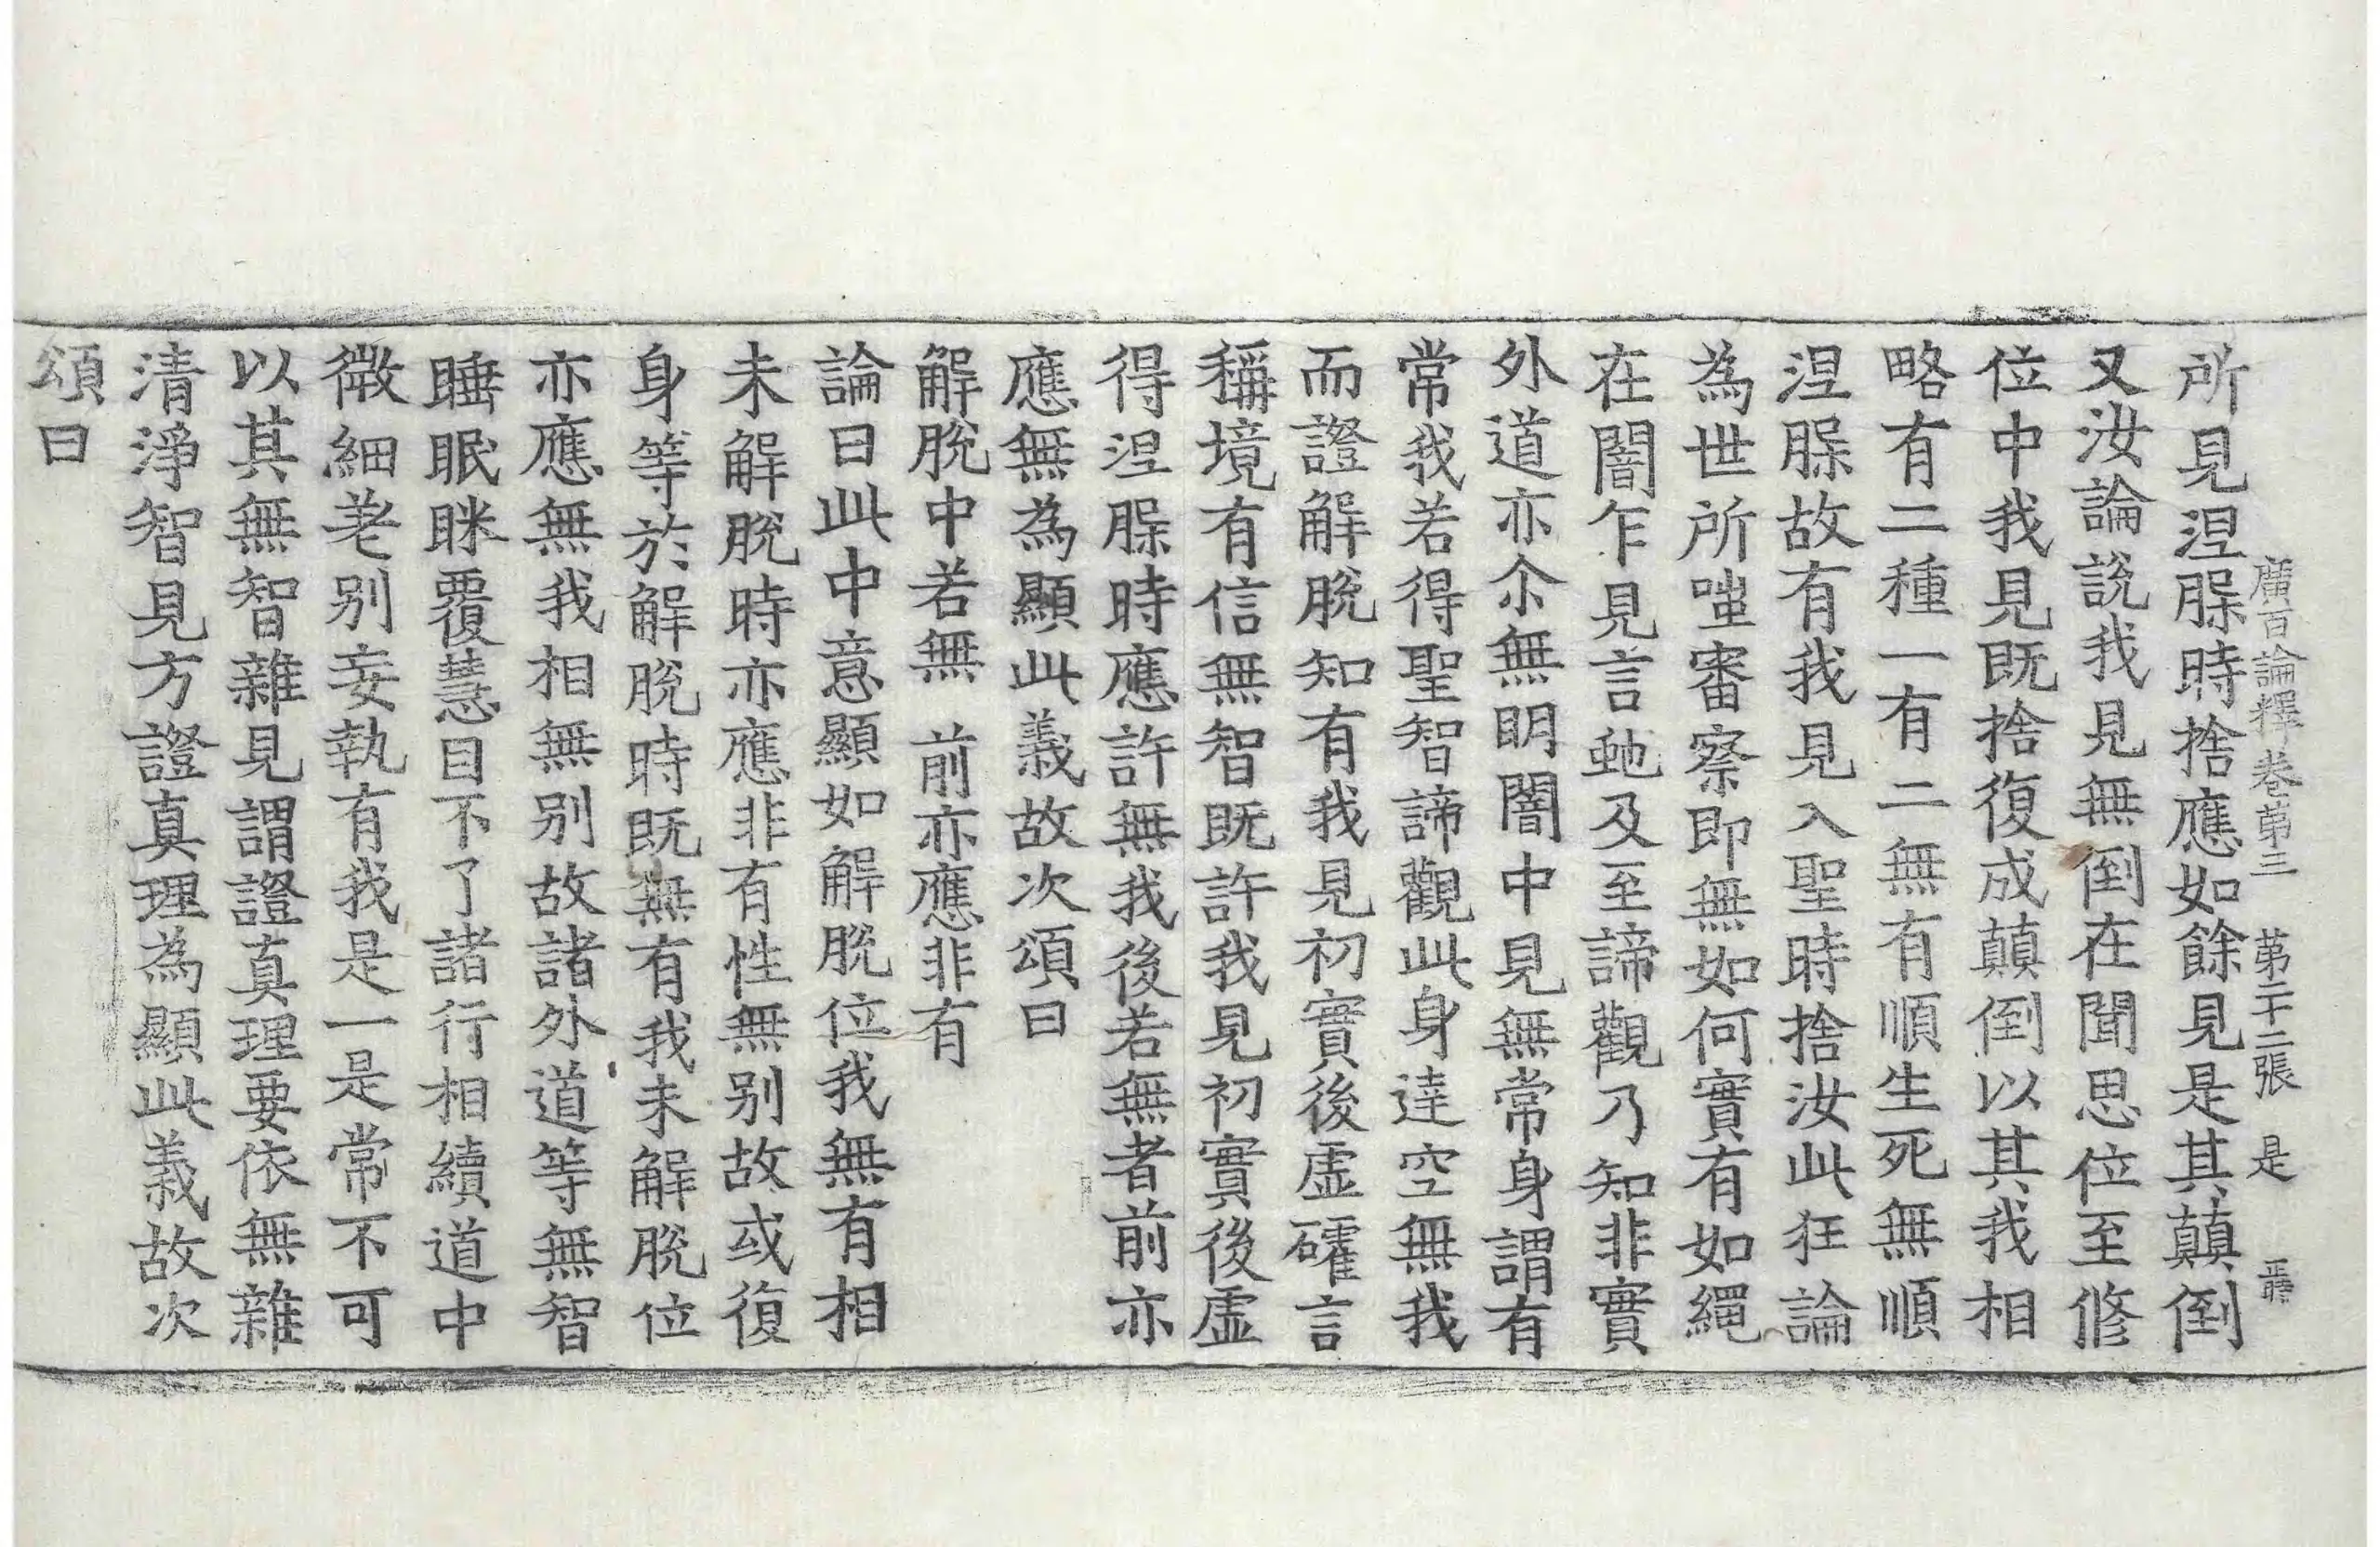 廣百論釋卷第三　第二十二張　是
所見涅槃時捨應如餘見是其顛倒
又汝論說我見無倒在聞思位至修
位中我見既捨復成顛倒以其我相
略有二種一有二無有順生死無順
涅槃故有我見入聖時捨汝此狂論
為世所嗤審察即無如何實有如繩
在闇乍見言虵及至諦觀乃知非實
外道亦尒無明闇中見無常身謂有
常我若得聖智諦觀此身達空無我
而證解脫知有我見初實後虛礭言
稱境有信無智既許我見初實後虛
得涅槃時應許無我後若無者前亦
應無為顯此義故次頌曰
解脫中若無　前亦應非有
論曰此中意顯如解脫位我無有相
未解脫時亦應非有性無別故或復
身等於解脫時既無有我未解脫位
亦應無我相無別故諸外道等無智
睡眠眯覆慧目不了諸行相續道中
微細差別妄執有我是一是常不可
以其無智雜見謂證真理要依無雜
清淨智見方證真理為顯此義故次
頌曰